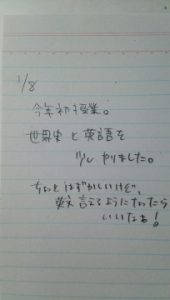 1/8
今年初授業。
世界史と英語を
少しやりました。
ちょっとはずかしいけど、
英文言えるようになったら
いいなぁ!